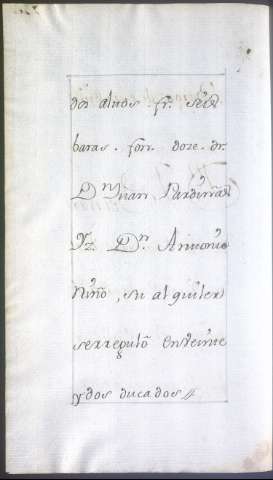 dos altos. fr. seis
baras. fon. doze. dr.
Dn. Juan Pardiñas
Yz. Dn. Antonio
Niño, su alquiler
se rreguló en veinte
y dos ducados //